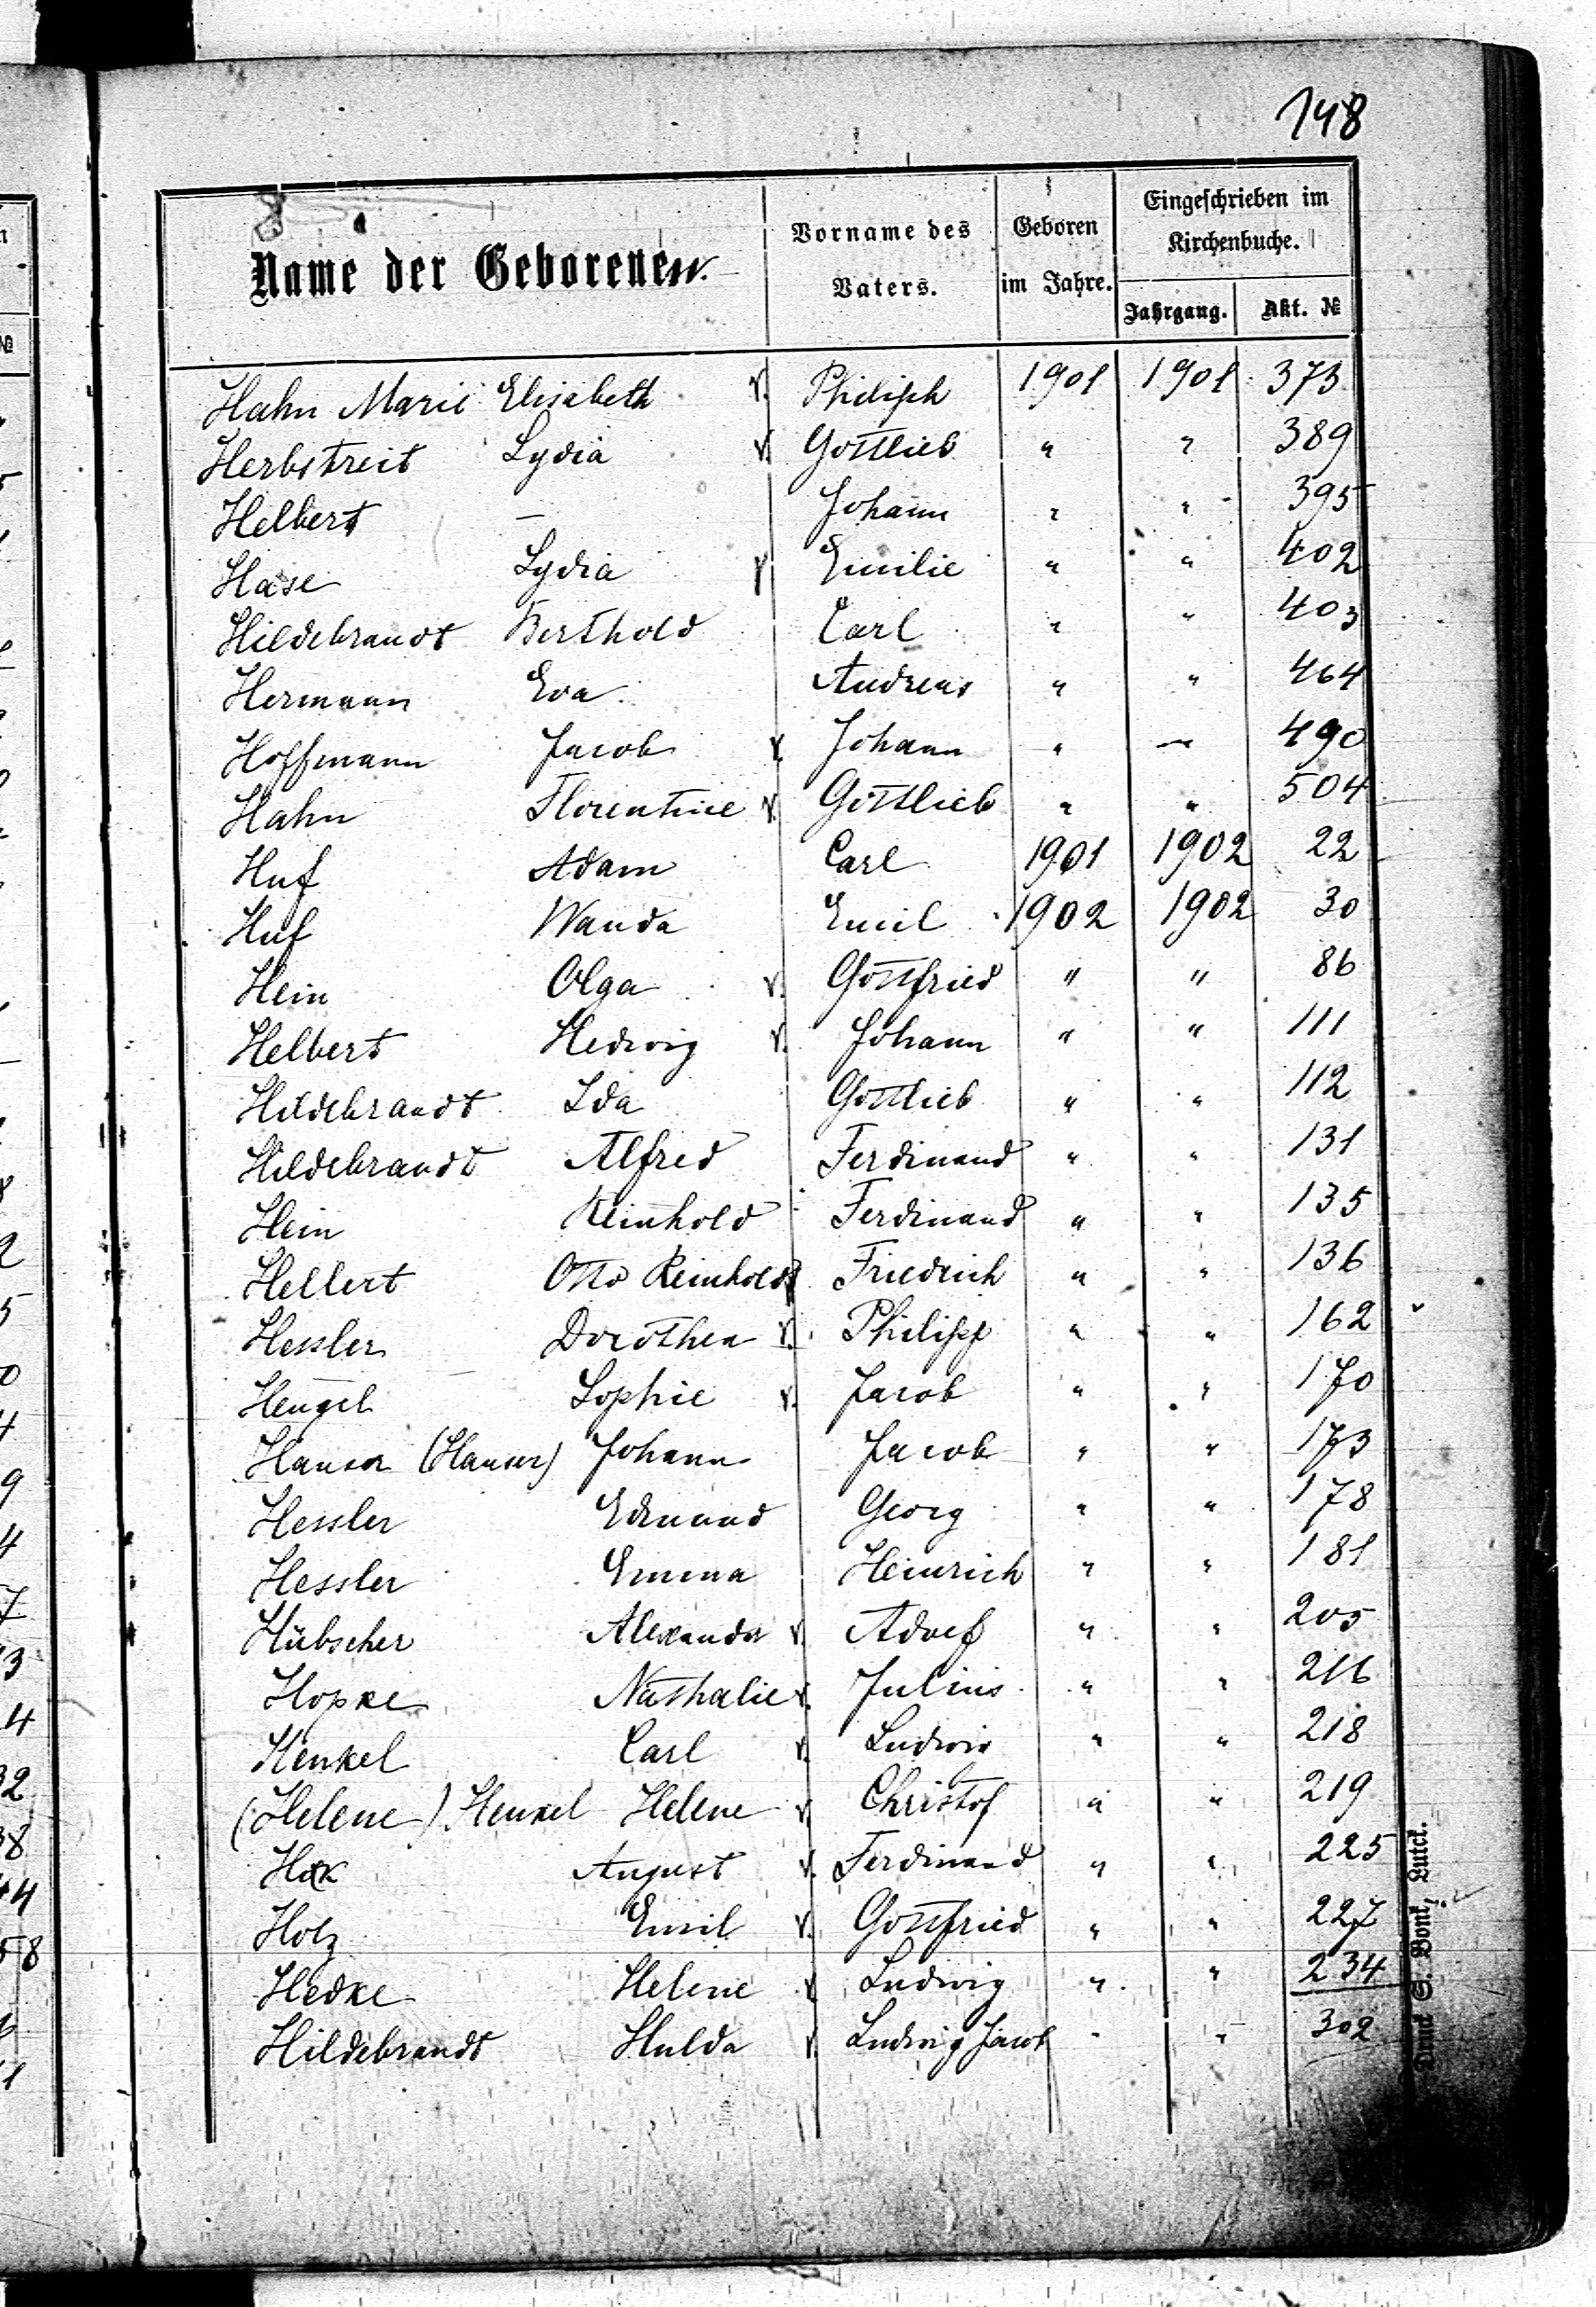 148
Name der Geborenen. Vorname des Vaters. Geboren im Jahre. Eingeschrieben im Kirchenbuche.
Jahrgang. Akt. №
Hahn Marie Elisabeth v. Philipp 1901 1901 373
Herbstreit Lydia v. Gottlieb " " 389
Helbert — Johann " " 395
Hase Lydia v Emilie " " 402
Hildebrandt Berthold Carl " " 403
Hermann Eva Andreas " " 464
Hoffmann Jacob v. Johann " " 490
Hahn Florentine v. Gottlieb " " 504
Huf Adam Carl 1901 1902 22
Huf Wanda Emil 1902 1902 30
Hein Olga v. Gottfried " " 86
Helbert Hedwig v. Johann " " 111
Hildebrandt Ida Gottlieb " " 112
Hildebrandt Alfred Ferdinand " " 131
Hein Reinhold Ferdinand " " 135
Hellert Otto Reinhold v. Friedrich " " 136
Hessler Dorothea v. Philipp " " 162
Hengel Sophie v. Jacob " " 170
(Hauser) Johann Jacob " " 173
Hessler Edmund Georg " " 178
Hessler Emma Heinrich " " 181
Hübscher Alexander v. Adolf " " 205
Hopke Nathalie v. Julius " " 216
Henkel Carl v. Ludwig " " 218
(Helene) Henkel Helene v. Christof " " 219
August v. Ferdinand " " 225
Holz Emil v. Gottfried " " 227
Hedke Helene v Ludwig " " 234
Hildebrandt Hulda v. Ludwig Jacob " " 302
Druck S. Bonk, Lutck.